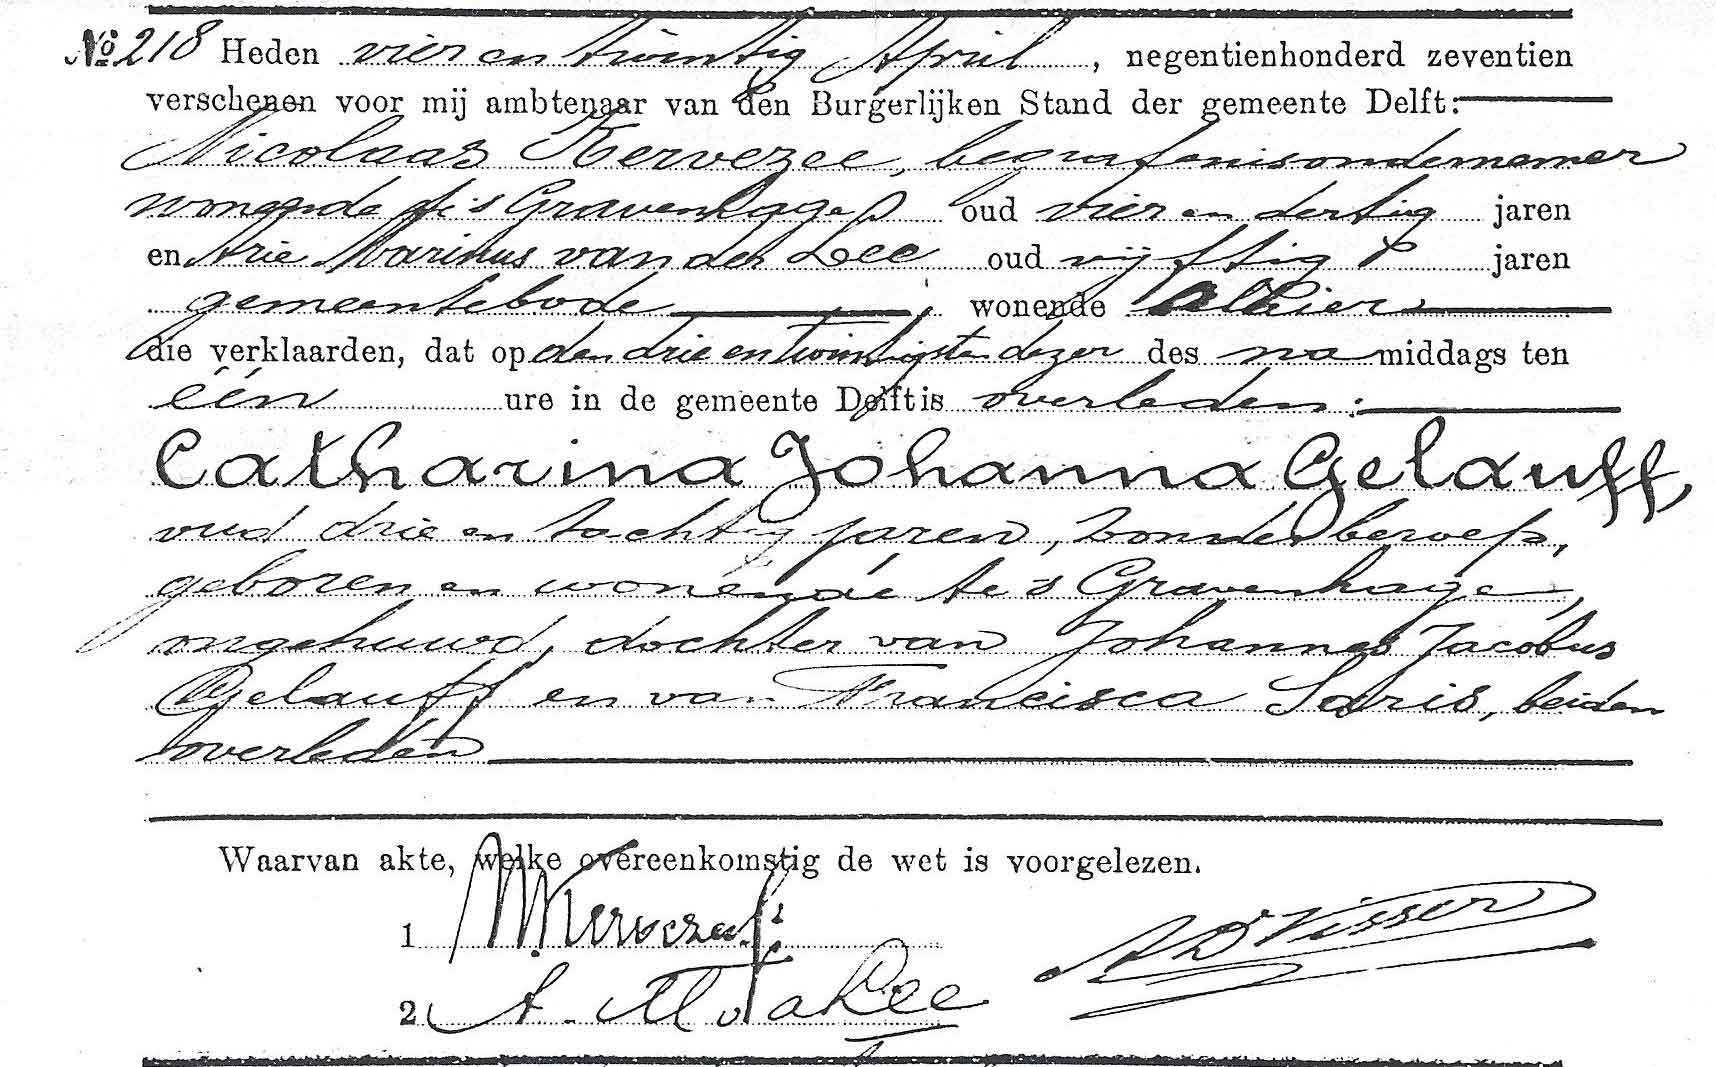 No 218 Heden vier en twintig April, negentienhonderd zeventien
verschenen voor mij ambtenaar van den Burgerlijken Stand der gemeente Delft:
Nicolaas Kervezee, begrafenisondernemer
wonende te 's Gravenhage, oud vier en dertig jaren
en Arie Marinus van der Lee oud vijftig jaren
gemeentebode, wonende alhier
die verklaarden, dat op den drie en twintigsten dezer des na middags ten
één ure in de gemeente Delft is overleden:
Catharina Johanna Gelauff,
oud drie en tachtig jaren, zonder beroep,
geboren en wonende te 's Gravenhage,
ongehuwd, dochter van Johannes Jacobus
Gelauff en van Francisca Saris, beiden
overleden
Waarvan akte, welke overeenkomstig de wet is voorgelezen.
1 N Kervezee
2 A. M. v d Lee
Visser